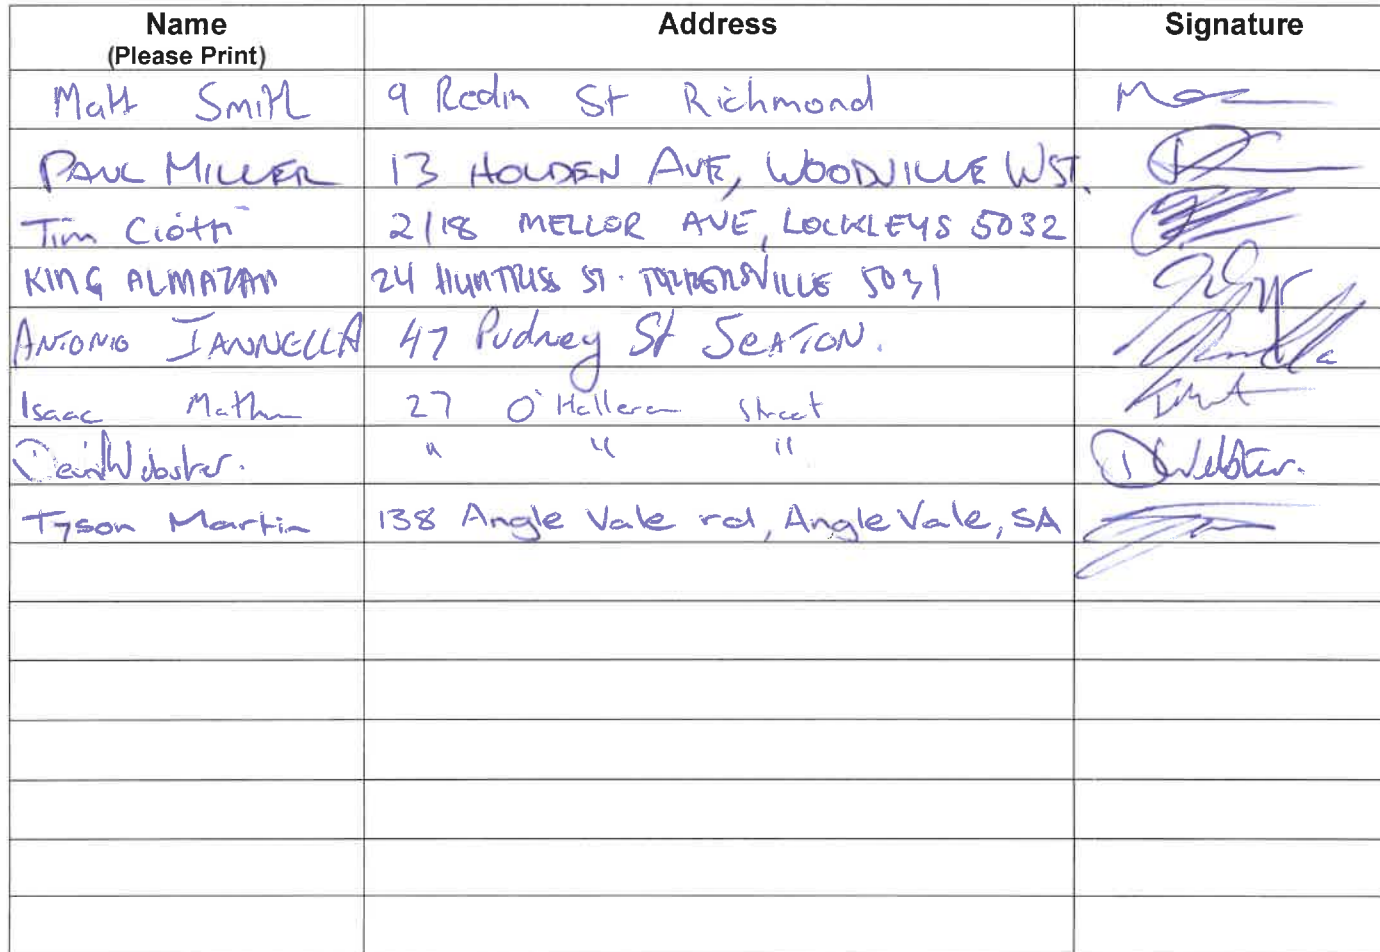 Name Address Signature
(Please Print)
Matt Smith 9 Redin St Richmond
PAUL MILLER 13 HOLDEN AVE, WOODVILLE WST.
Tim Ciotti 2/18 MELLOR AVE, LOCKLEYS 5032
KING ALMAZAN 24 HUNTRISS ST. 5031
ANTONIO IANNELLA 47 Pudney St SEATON.
Isaac 27 O'Halleran Street
Webster. " " " DWebster.
Tyson Martin 138 Angle Vale rd, Angle Vale, SA